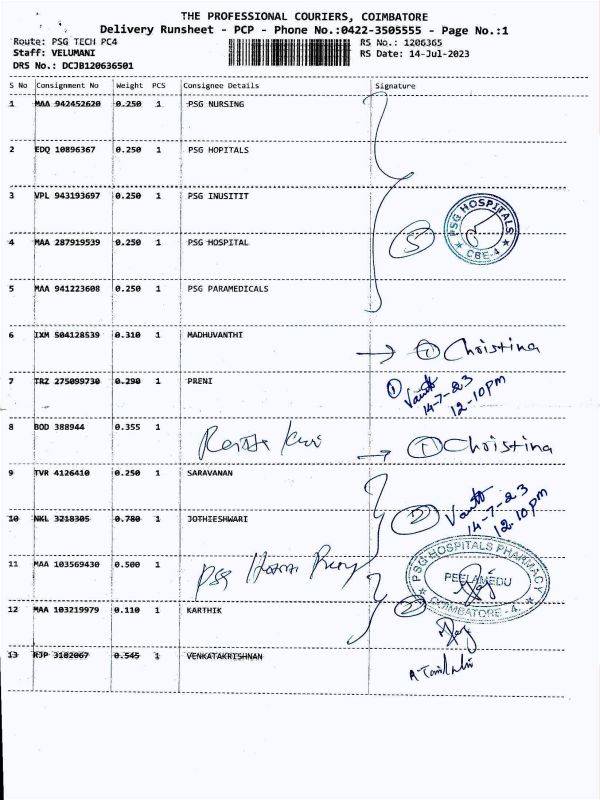 THE PROFESSIONAL COURIERS, COIMBATORE
Delivery Runsheet - PCP - Phone No.:0422-3505555 - Page No.:1
Route: PSG TECH PC4 RS No.: 1206365
Staff: VELUMANI RS Date: 14-Jul-2023
DRS No.: DCJB120636501
S No Consignment No Weight PCS Consignee Details Signature
1 MAA 942452620 0.250 1 PSG NURSING
2 EDQ 10896367 0.250 1 PSG HOPITALS
3 VPL 943193697 0.250 1 PSG INUSITIT
PSG HOSPITALS
4 MAA 287919539 0.250 1 PSG HOSPITAL 5
CBE-4
5 MAA 941223608 0.250 1 PSG PARAMEDICALS
6 IXM 504128539 0.310 1 MADHUVANTHI 1 Christina
7 TRZ 275099730 0.290 1 PRENI 1
14-7-23
12-10pm
8 BOD 388944 0.355 1 1 Christina
9 TVR 4126410 0.250 1 SARAVANAN
10 NKL 3218305 0.780 1 JOTHIESHWARI 2
14-7-23
12.10pm
11 MAA 103569430 0.500 1 PSG
PSG HOSPITALS PHARMACY
PEELAMEDU
COIMBATORE - 4.
12 MAA 103219979 0.110 1 KARTHIK 2
13 RJP 3182067 0.545 1 VENKATAKRISHNAN